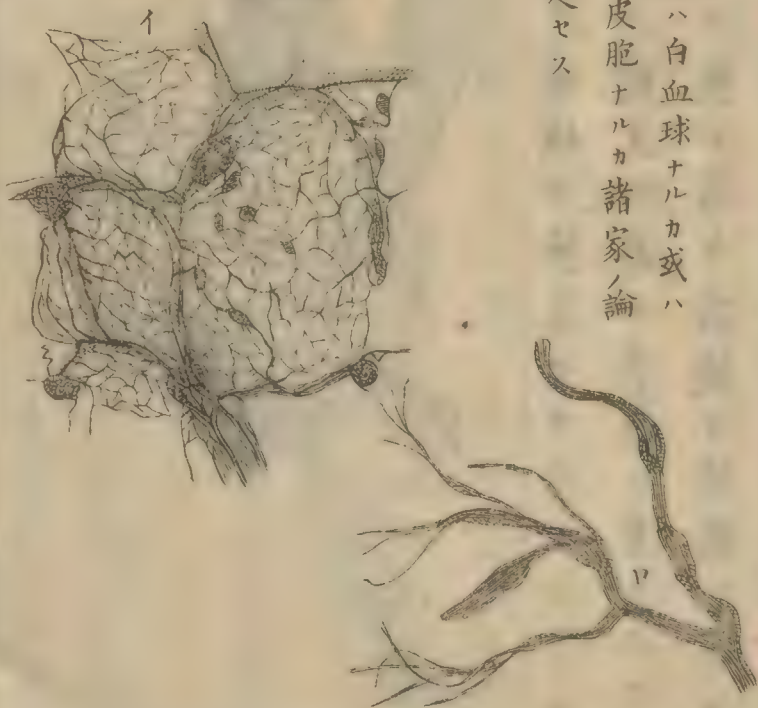 ハ白血球ナルカ或ハ
皮胞ナルカ諸家ノ論
セス
イ
ロ